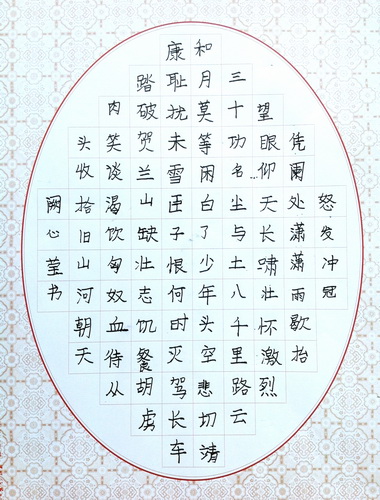 怒发冲冠
凭阑处潇潇雨歇抬
望眼仰天长啸壮怀激烈
三十功名尘与土八千里路云
和月莫等闲白了少年头空悲切靖
康耻扰未雪臣子恨何时灭驾长车
踏破贺兰山缺壮志饥餐胡虏
肉笑谈渴饮匈奴血待从
头收拾旧山河朝天
阙心莹书